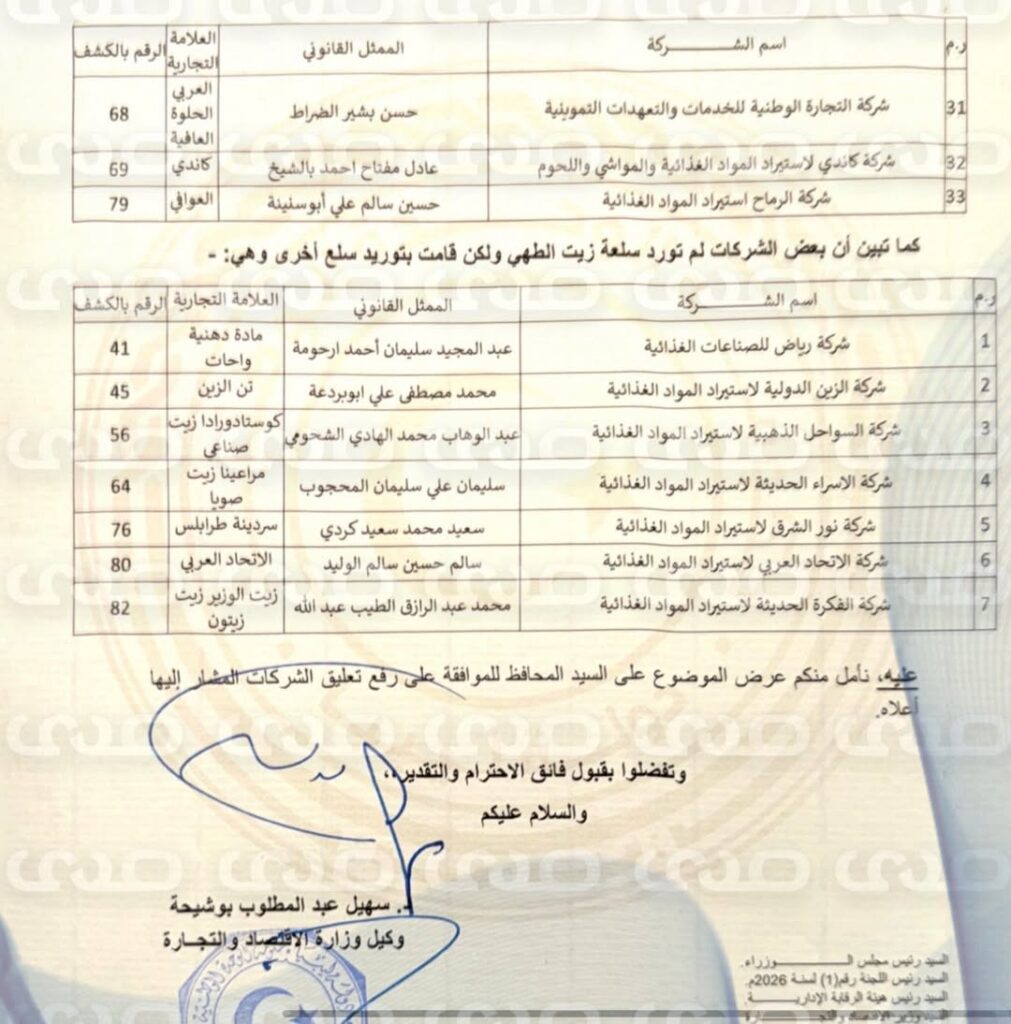 ر.م اسم الشـــــركة الممثل القانوني العلامة التجارية الرقم بالكشف
31 شركة التجارة الوطنية للخدمات والتعهدات التموينية حسن بشير الضراط العربي الحلوة العافية 68
32 شركة كاندي لاستيراد المواد الغذائية والمواشي واللحوم عادل مفتاح احمد بالشيخ كاندي 69
33 شركة الرماح استيراد المواد الغذائية حسين سالم علي أبوسنينة العوافي 79
كما تبين أن بعض الشركات لم تورد سلعة زيت الطهي ولكن قامت بتوريد سلع أخرى وهي: -
ر.م اسم الشـــــركة الممثل القانوني العلامة التجارية الرقم بالكشف
1 شركة رياض للصناعات الغذائية عبد المجيد سليمان أحمد ارحومة مادة دهنية واحات 41
2 شركة الزين الدولية لاستيراد المواد الغذائية محمد مصطفى علي ابوبردعة تن الزين 45
3 شركة السواحل الذهبية لاستيراد المواد الغذائية عبد الوهاب محمد الهادي الشحومي كوستادورادا زيت صناعي 56
4 شركة الاسراء الحديثة لاستيراد المواد الغذائية سليمان علي سليمان المحجوب مراعينا زيت صويا 64
5 شركة نور الشرق لاستيراد المواد الغذائية سعيد محمد سعيد كردي سردينة طرابلس 76
6 شركة الاتحاد العربي لاستيراد المواد الغذائية سالم حسين سالم الوليد الاتحاد العربي 80
7 شركة الفكرة الحديثة لاستيراد المواد الغذائية محمد عبد الرازق الطيب عبد الله زيت الوزير زيت زيتون 82
عليه، نأمل منكم عرض الموضوع على السيد المحافظ للموافقة على رفع تعليق الشركات المشار إليها
أعلاه.
وتفضلوا بقبول فائق الاحترام والتقدير،،
والسلام عليكم
سهيل عبد المطلوب بوشيحة
وكيل وزارة الاقتصاد والتجـارة
السيد رئيس مجلس الـــــوزراء.
السيد رئيس اللجنة رقم(1) لسنة 2026م.
السيد رئيس هيئة الرقابة الإداريـــة.
السيد وزير الاقتصاد والتجـــارة
صدى